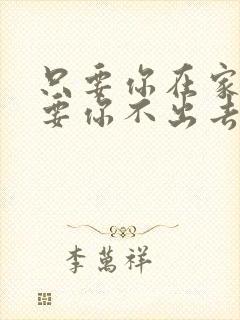 只要你在家
要你不出去
李萬祥